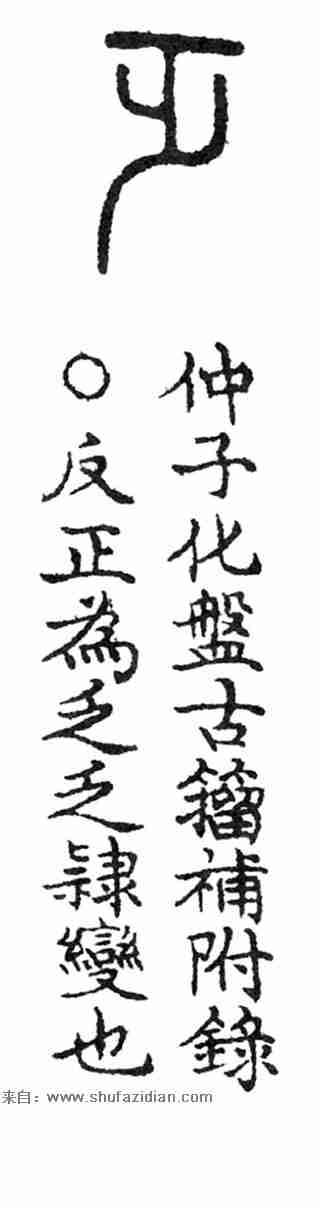 仲子化盤古籀補附錄
○反正為乏乏隸變也
来自：www.shufazidian.com